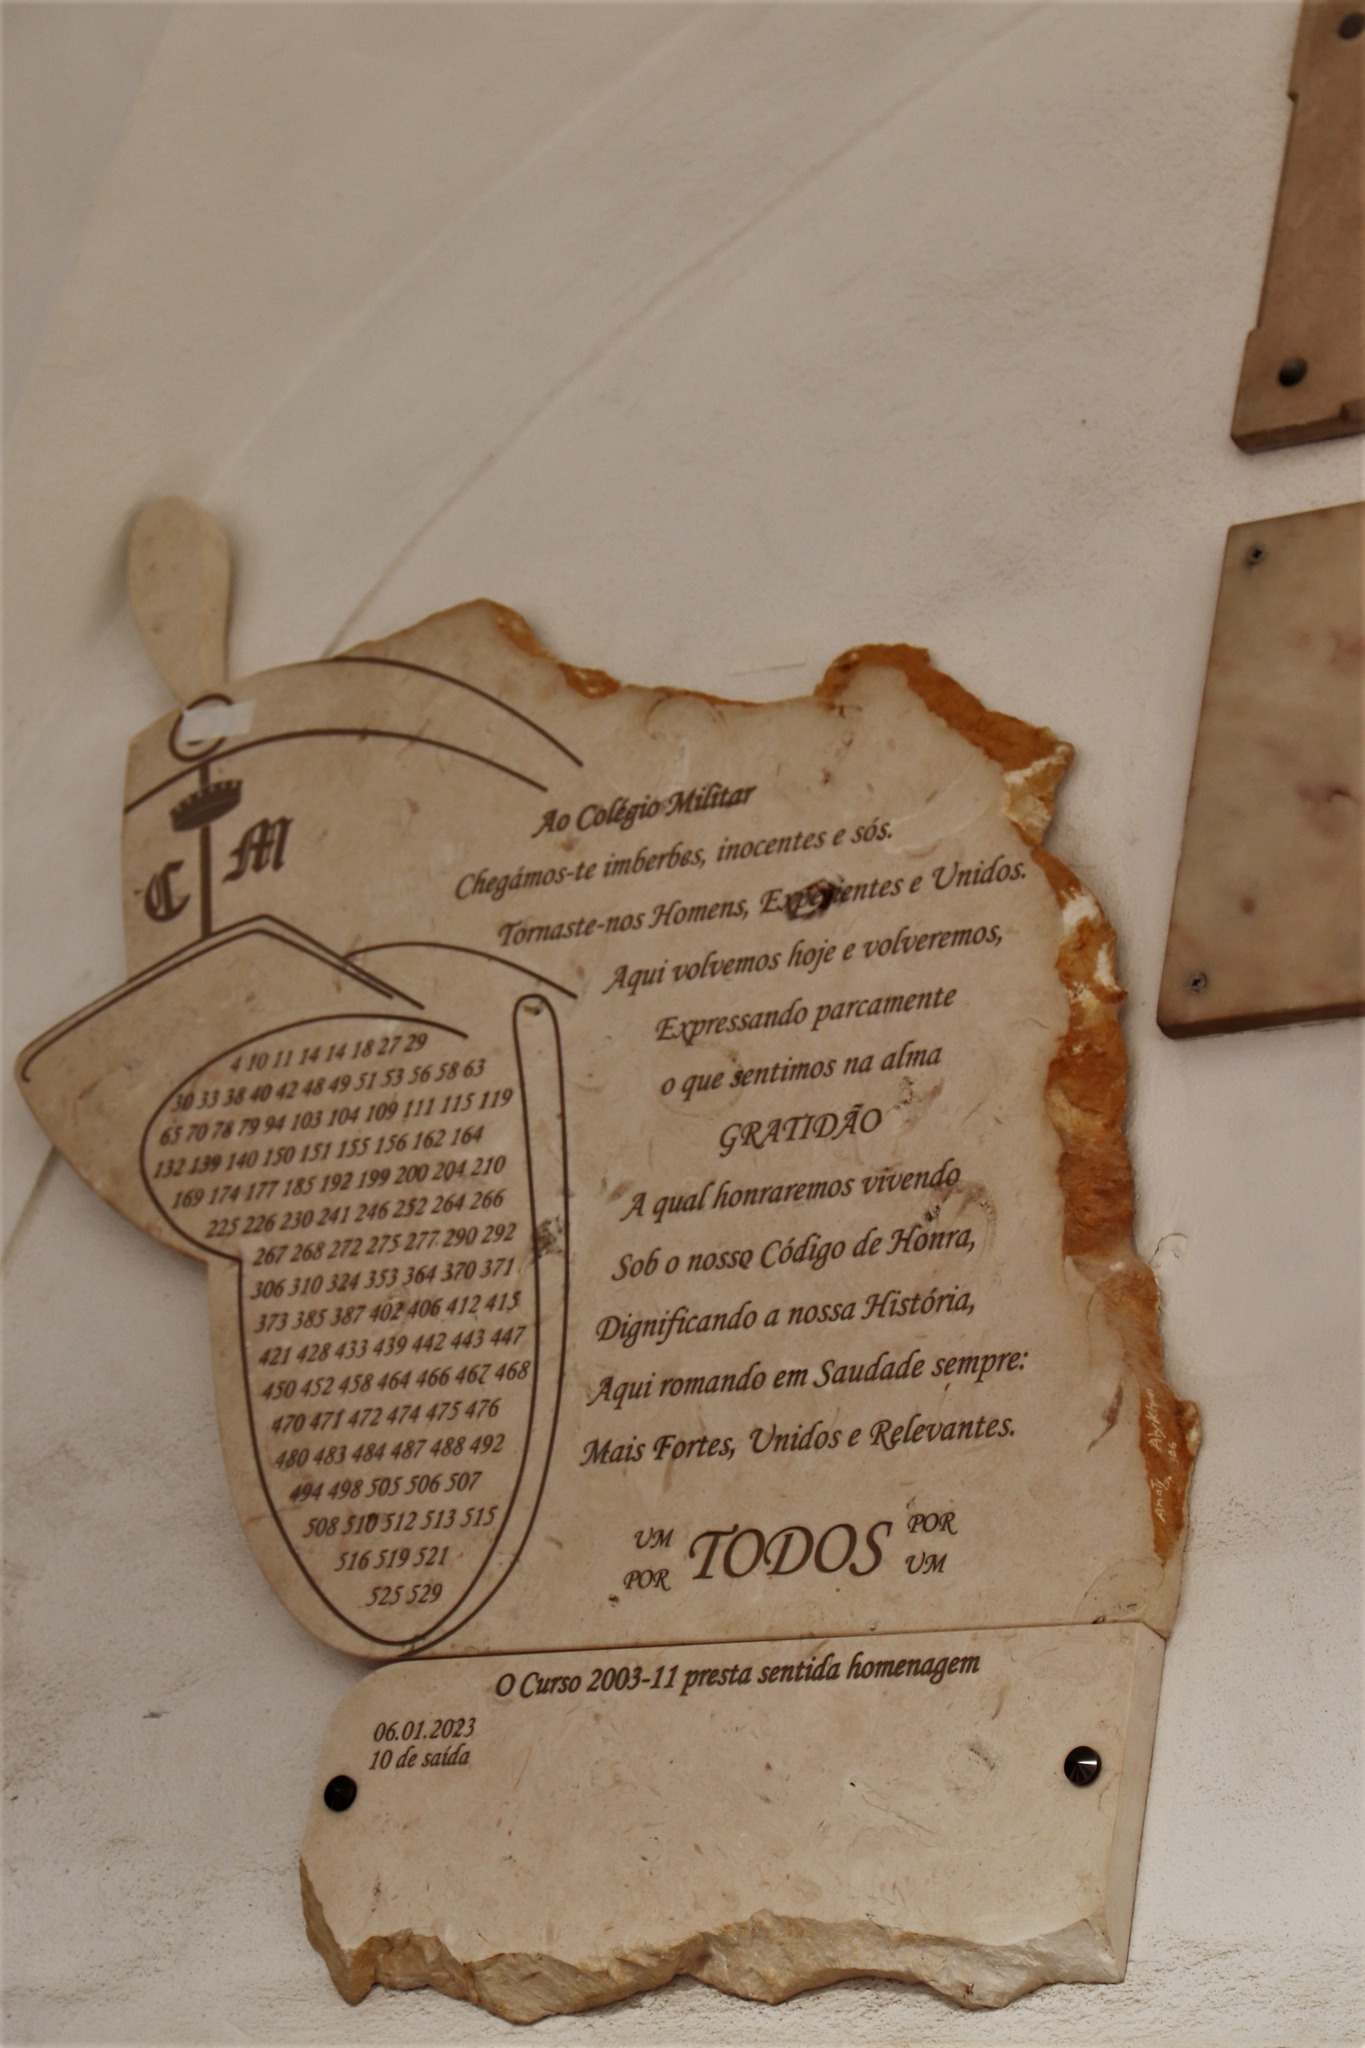 C M
Ao Colégio Militar
Chegámos-te imberbes, inocentes e sós.
Tornaste-nos Homens, Experientes e Unidos.
Aqui volvemos hoje e volveremos,
Expressando parcamente
o que sentimos na alma
GRATIDÃO
A qual honraremos vivendo
Sob o nosso Código de Honra,
Dignificando a nossa História,
Aqui romando em Saudade sempre:
Mais Fortes, Unidos e Relevantes.
UM POR TODOS POR UM
4 10 11 14 14 18 27 29
30 33 38 40 42 48 49 51 53 56 58 63
65 70 78 79 94 103 104 109 111 115 119
132 139 140 150 151 155 156 162 164
169 174 177 185 192 199 200 204 210
225 226 230 241 246 252 264 266
267 268 272 275 277 290 292
306 310 324 353 364 370 371
373 385 387 402 406 412 415
421 428 433 439 442 443 447
450 452 458 464 466 467 468
470 471 472 474 475 476
480 483 484 487 488 492
494 498 505 506 507
508 510 512 513 515
516 519 521
525 529
O Curso 2003-11 presta sentida homenagem
06.01.2023
10 de saída